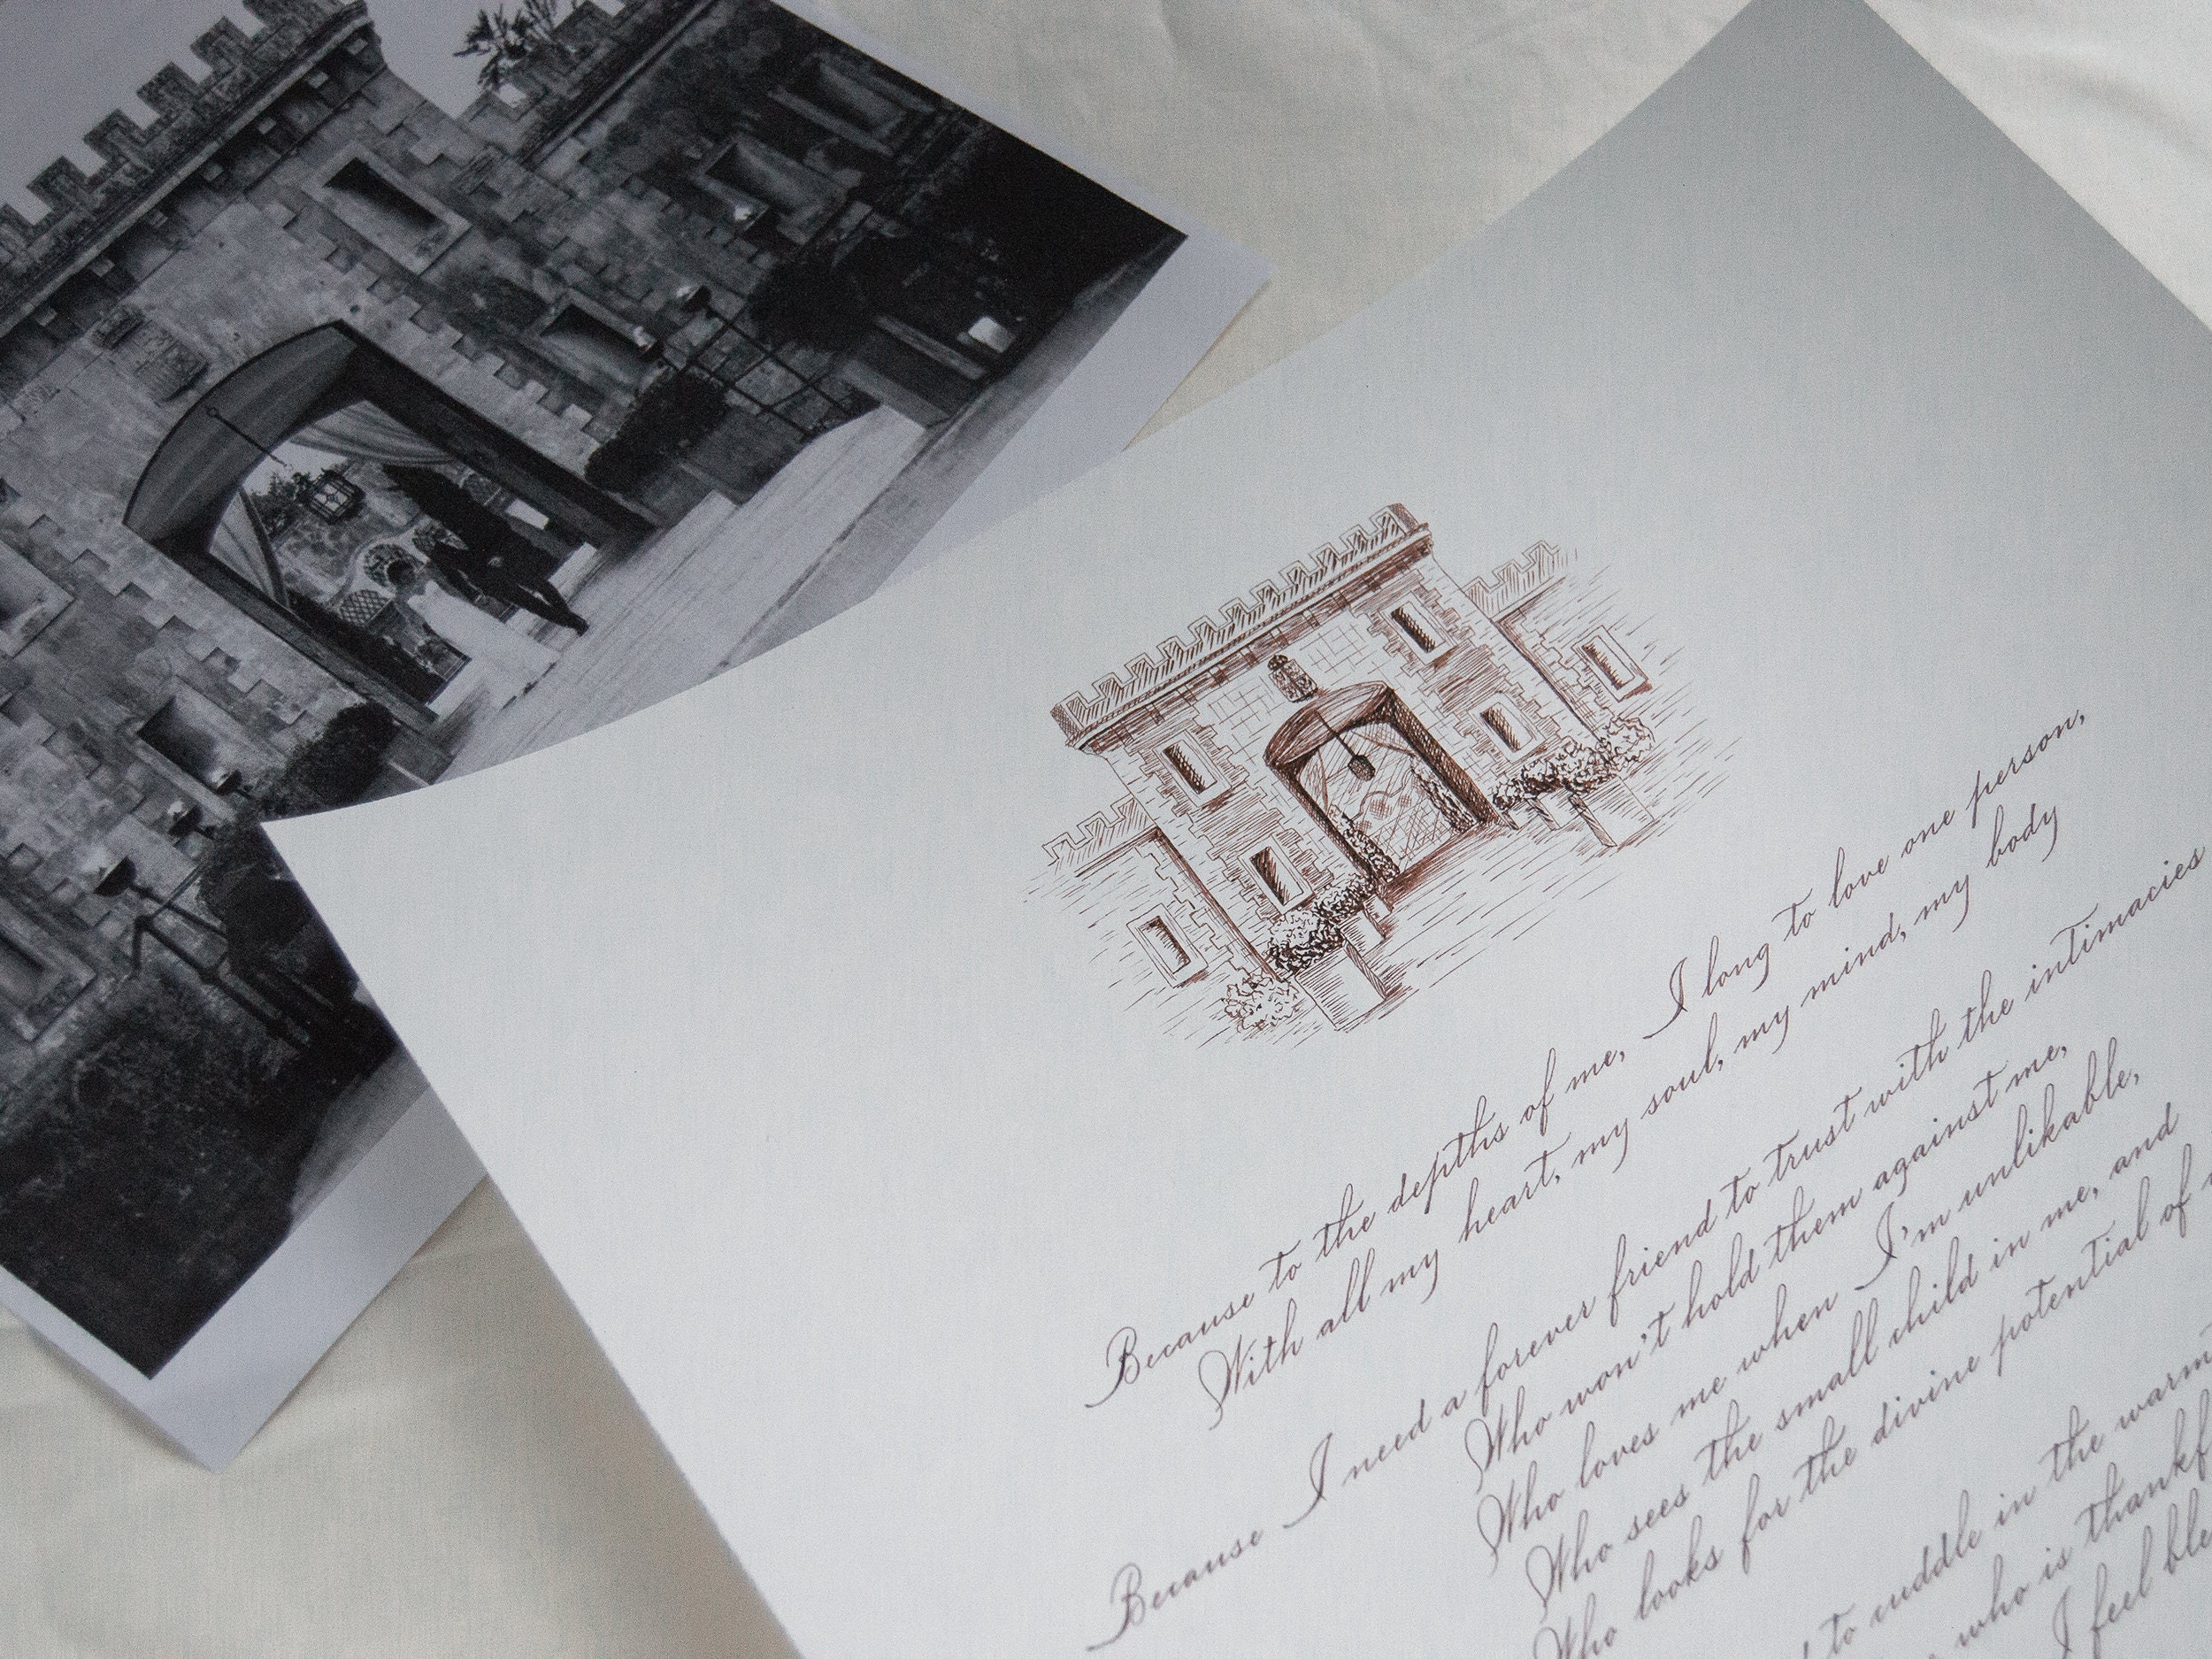 Because to the depths of me, I long to love one person,
With all my heart, my soul, my mind, my body
Because I need a forever friend to trust with the intimacies
Who won't hold them against me,
Who loves me when I'm unlikable,
Who sees the small child in me, and
Who looks for the divine potential of
to cuddle in the
who is
I feel